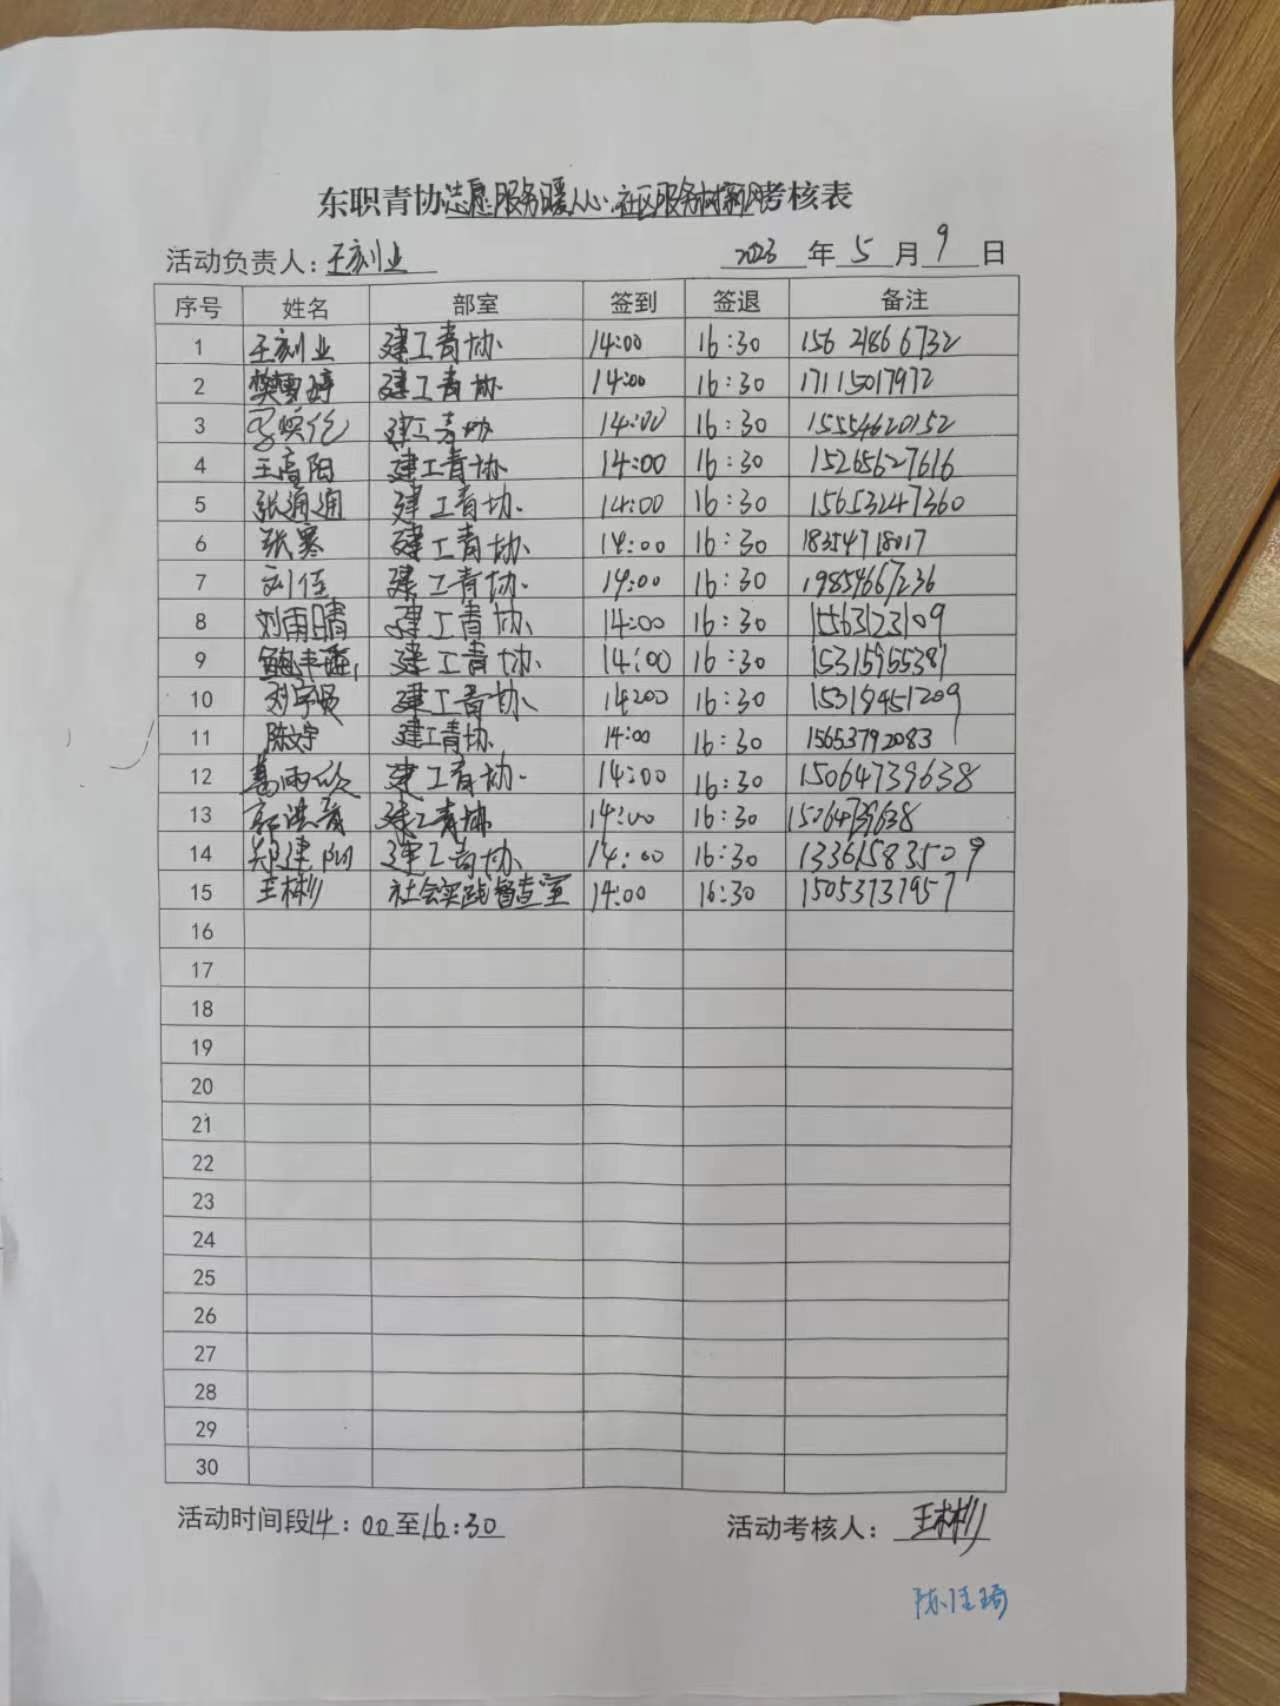 东职青协志愿服务暖人心.社区服务树新风考核表
活动负责人：王刻业 2023年5月9日
序号 姓名 部室 签到 签退 备注
1 王刻业 建工青协 14:00 16:30 156 2186 6732
2 樊雪婷 建工青协 14:00 16:30 17115017972
3 焕伦 建工青协 14:00 16:30 15554620152
4 王高阳 建工青协 14:00 16:30 15265627616
5 张通通 建工青协 14:00 16:30 15653247360
6 张寒 建工青协 14:00 16:30 18354718017
7 刘佳 建工青协 14:00 16:30 19854667236
8 刘雨晴 建工青协 14:00 16:30 15563123109
9 鲍 建工青协 14:00 16:30 15315965387
10 刘宇 建工青协 14:00 16:30 15318451209
11 陈文宇 建工青协 14:00 16:30 15653792083
12 葛雨欣 建工青协 14:00 16:30 15064739638
13 郭洪 建工青协 14:00 16:30 15064739638
14 郑建 建工青协 14:00 16:30 13361583509
15 王彬 社会实践督查室 14:00 16:30 15053737957
16
17
18
19
20
21
22
23
24
25
26
27
28
29
30
活动时间段14:00至16:30 活动考核人：王彬
陈佳琦